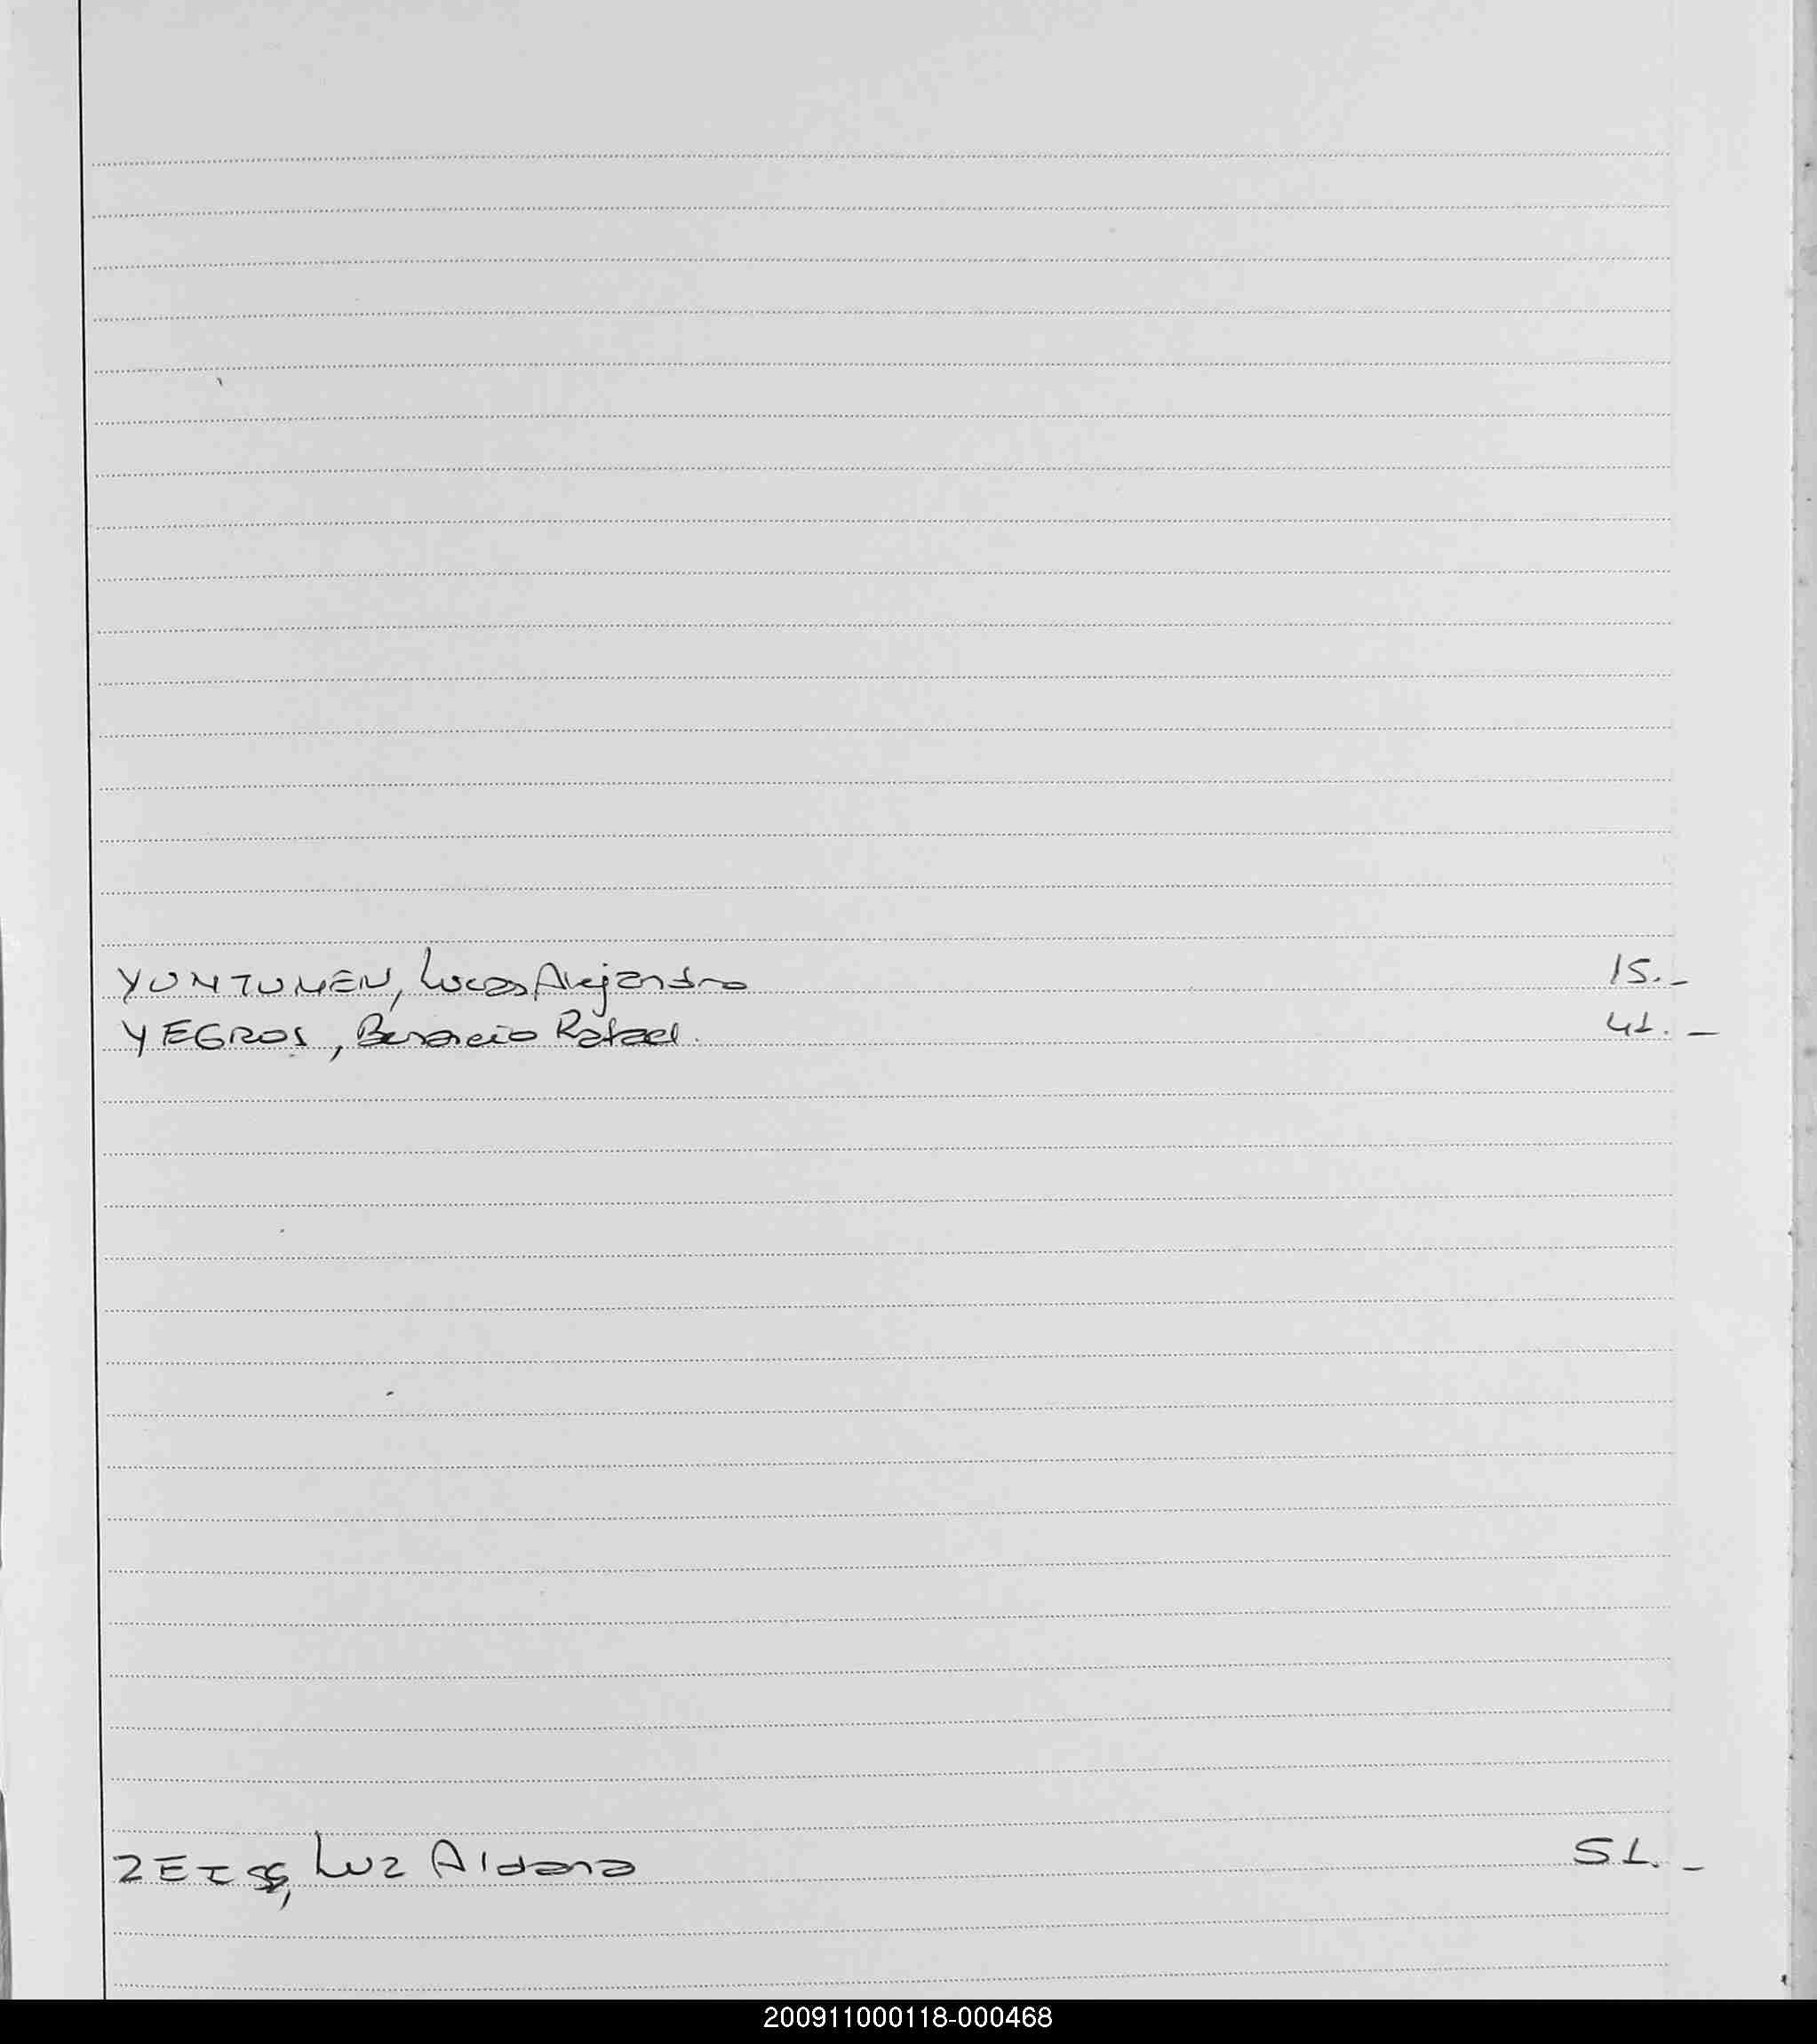 YUNTUNEN, Lucas Alejandro 15.-
YEGROS, Rafael. 41.-
ZEISS, Luz Aldana 51.-
200911000118-000468